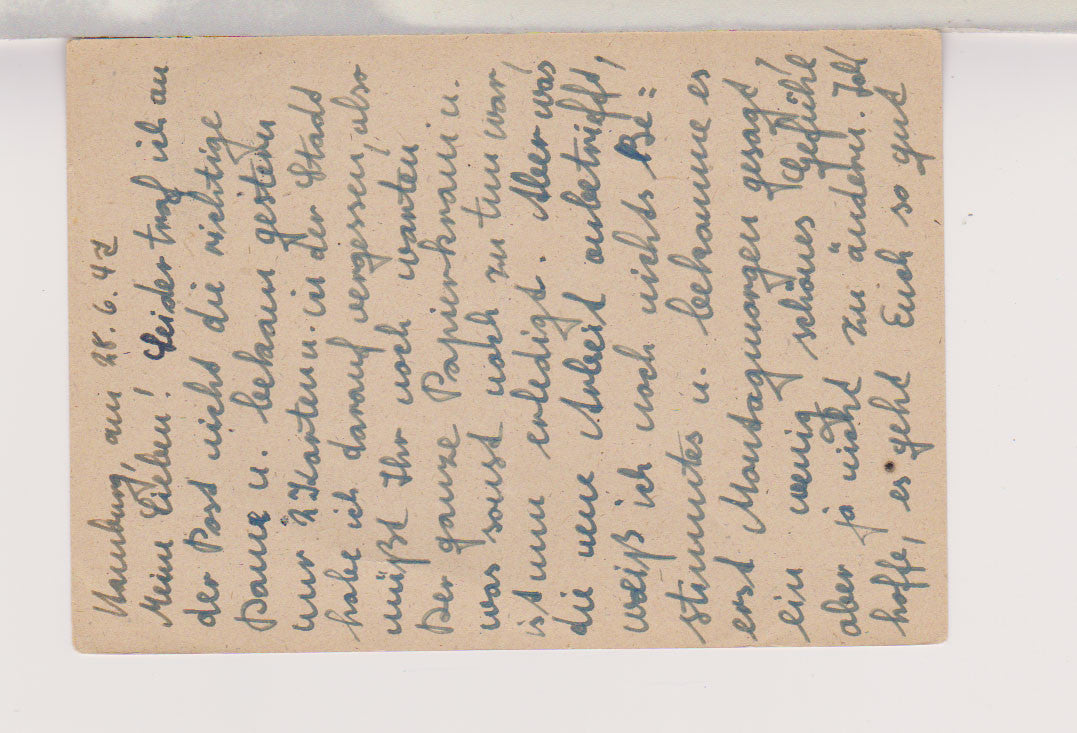 Hamburg, am 28.6.47
Meine Lieben! Leider traf ich an
der Post nicht die richtige
Dame u. bekam gestern
nur 2 Karten. in der Stadt
habe ich darauf vergessen, also
müßt Ihr noch warten
Der ganze Papierkram u.
was sonst noch zu tun war,
ist nun erledigt. Aber was
die neue Arbeit anbetrifft,
weiß ich noch nichts Be=
stimmtes u. bekomme es
erst Montagmorgen gesagt
ein wenig schönes Gefühl
aber ja nicht zu ändern. Ich
hoffe, es geht Euch so gut